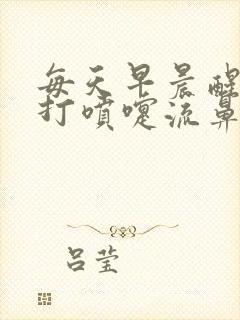 每天早晨醒
打喷嚏流鼻
吕莹